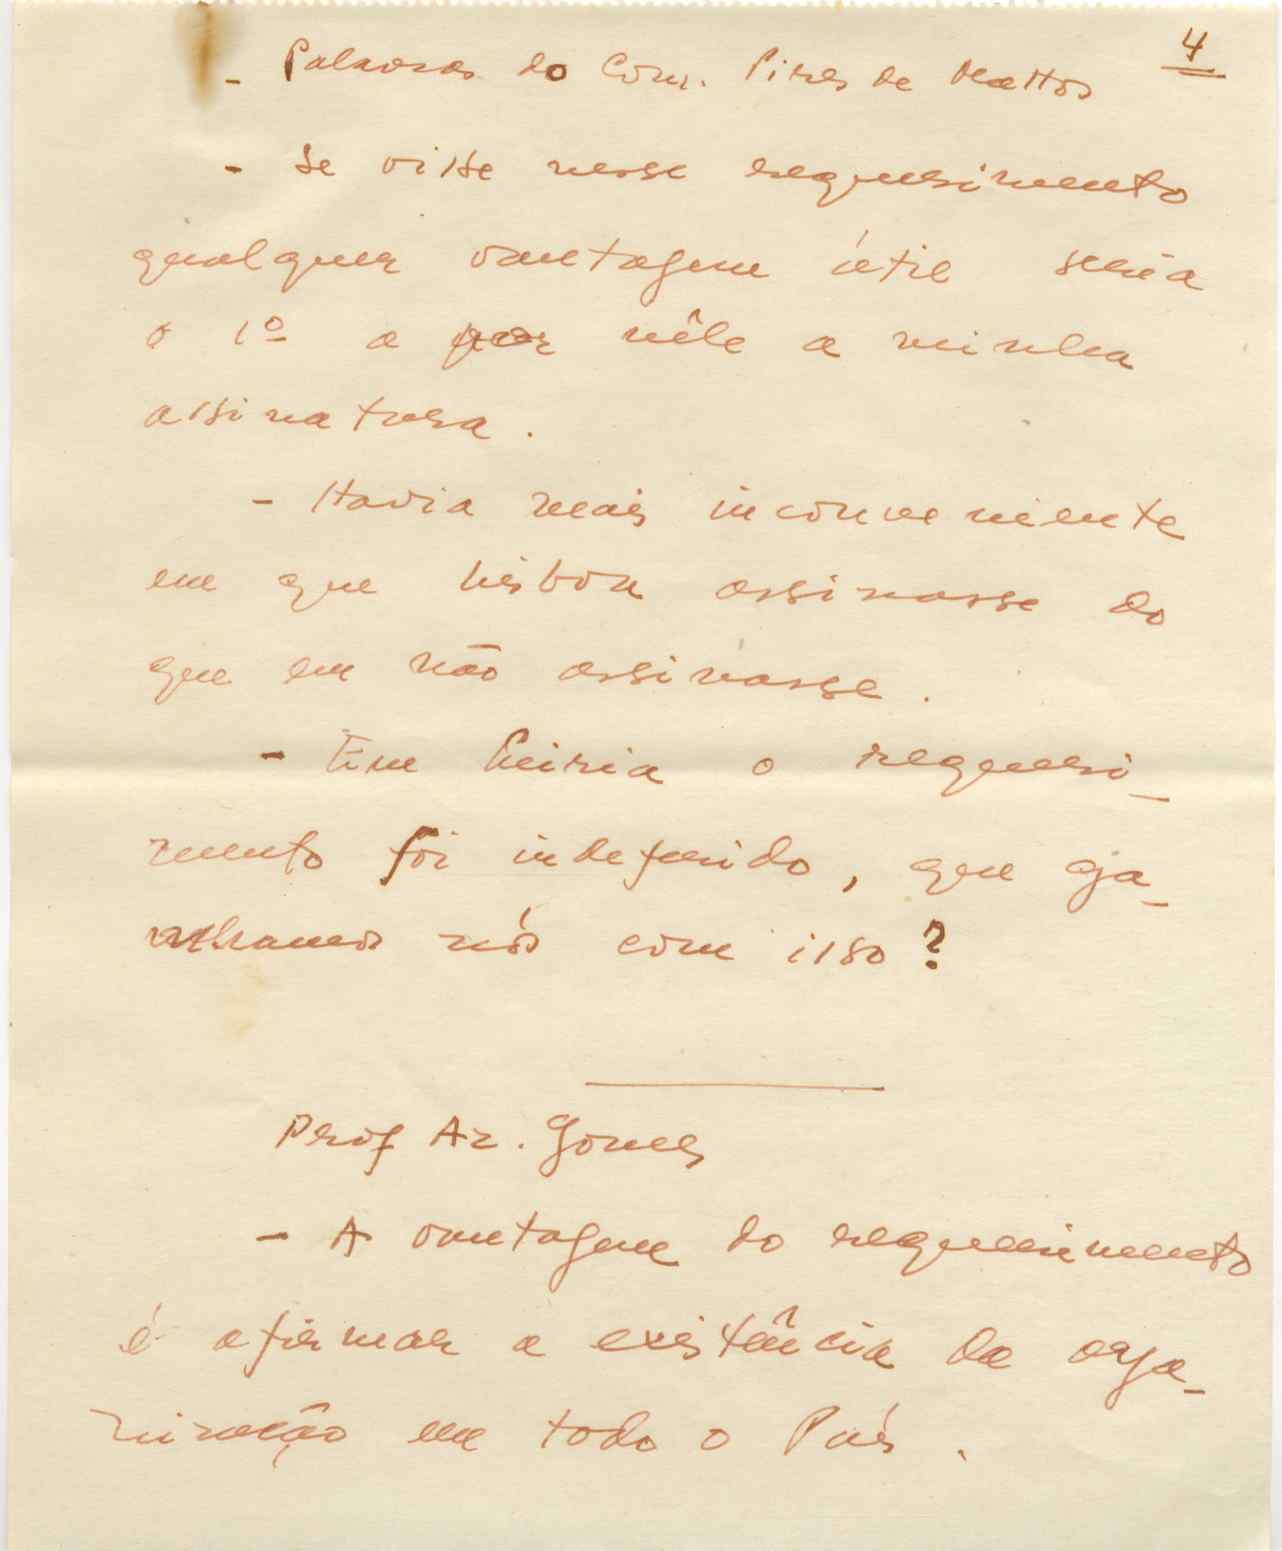 4
- Palavras do Com. Pires de Mattos
- Se visse nesse requerimento
qualquer vantagem útil seria
o 1º a pôr nêle a minha
assinatura.
- Havia mais inconveniente
em que Lisboa assinasse do
que eu não assinasse.
- Em Leiria o requeri-
mento foi indeferido, que ga-
nhamos nós com isso?
Prof Az. Gomes
- A vantagem do requerimento
é afirmar a existência da orga-
nização em todo o País.